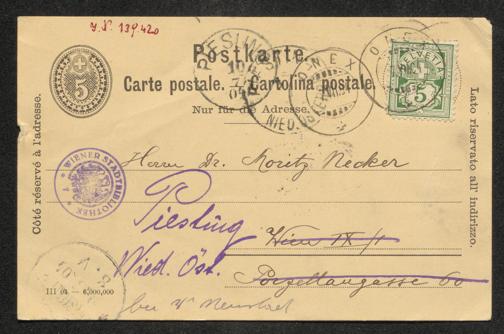 I. N. 139.420
Postkarte.
Carte postale. Cartolina postale.
Nur für die Adresse.
5
HELVETIA
5
Côté réservé à l'adresse.
Lato riservato all' indirizzo.
WIENER STADTBIBLIOTHEK
Herrn Dr. Moritz Necker
Piesting
Wien IX/1
Nied. Öst.
Porzellangasse 60
bei Wr Neustadt
III 04 — 6,000,000